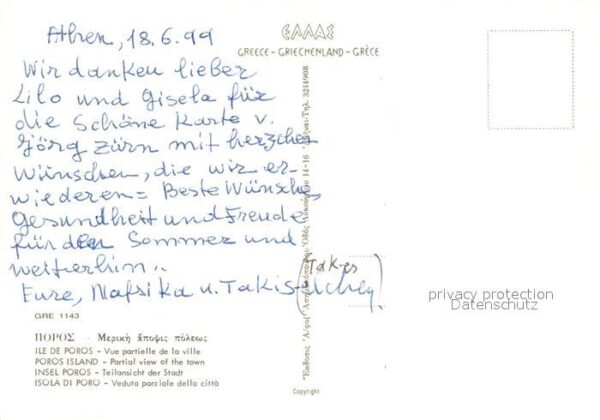 Athen, 18.6.99
Wir danken lieber
Lilo und Gisela für
die schöne Karte v.
Jörg Zürn mit herzchen
Wünschen, die wir er-
wiederen = Beste Wünsche
Gesundheit und Freude
für den Sommer und
weiterhin..
Eure, Nafsika u. Takis
(Takis
GRE 1143
ΠΟΡΟΣ - Μερικὴ ἄποψις πόλεως
ILE DE POROS - Vue partielle de la ville
POROS ISLAND - Partial view of the town
INSEL POROS - Teilansicht der Stadt
ISOLA DI PORO - Veduta parziale della città
ΕΛΛΑΣ
GREECE - GRIECHENLAND - GRÈCE
14-16 Ἀθῆναι-Τηλ. 3214908
Copyright
privacy protection
Datenschutz